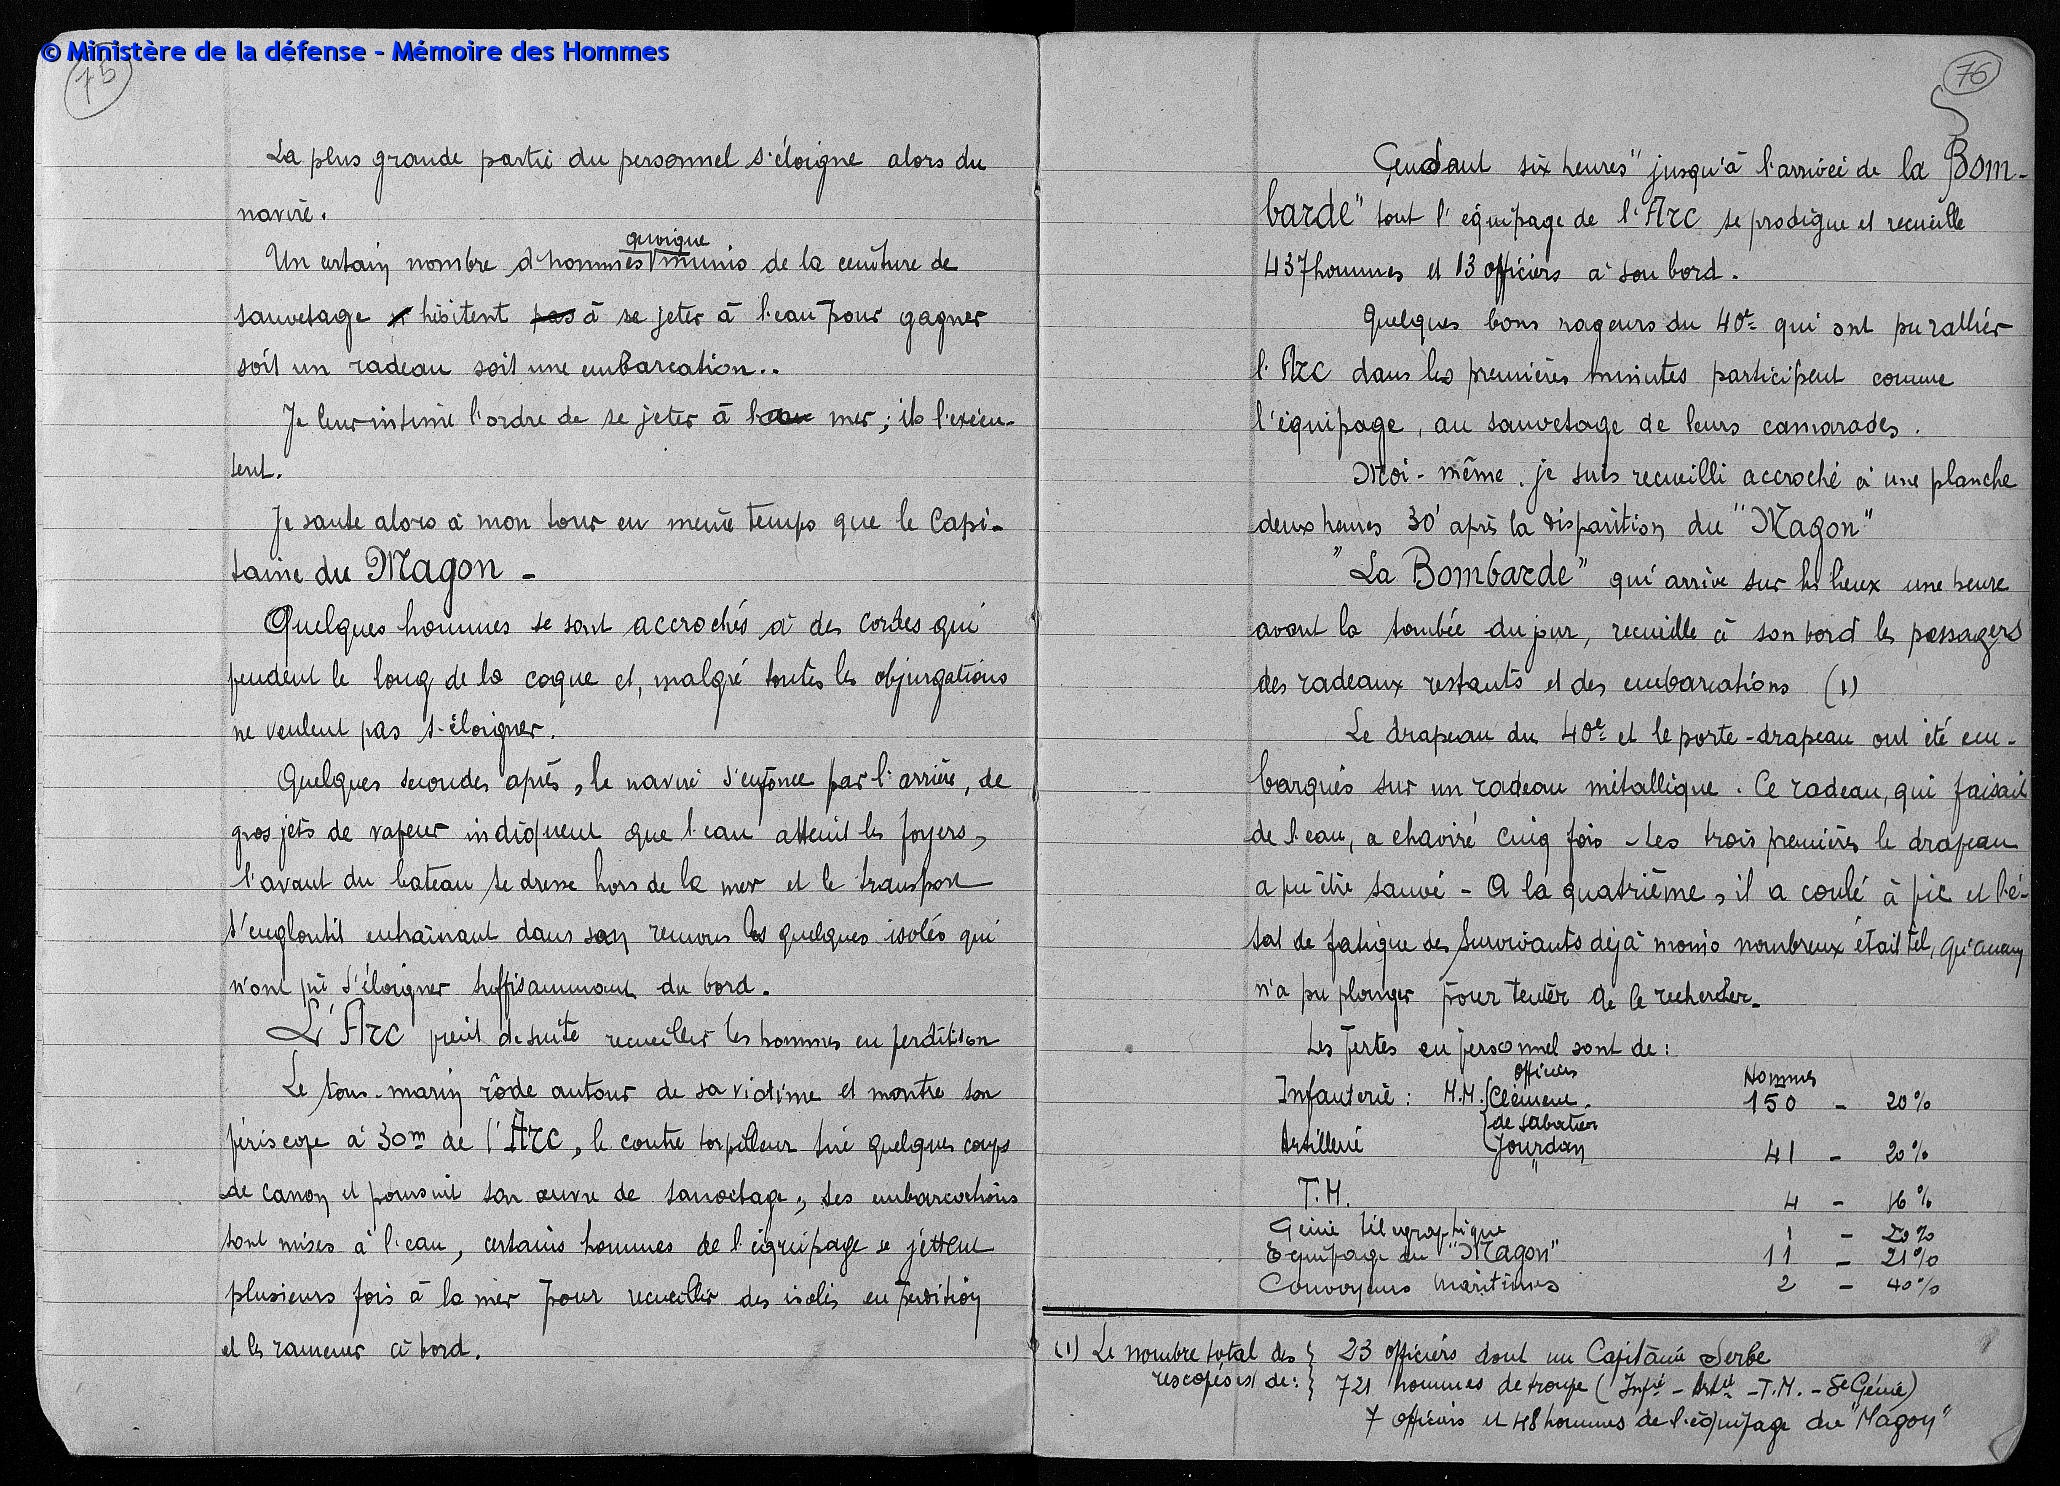 © Ministère de la défense - Mémoire des Hommes
75
La plus grande partie du personnel s'éloigne alors du
navire.
quoique
Un certain nombre d'hommes munis de la ceinture de
sauvetage hésitent pas à se jeter à l'eau pour gagner
soit un radeau soit une embarcation..
Je leur intime l'ordre de se jeter à la mer ; ils l'exécu-
tent.
Je saute alors à mon tour en même temps que le Capi-
taine du Magon -
Quelques hommes se sont accrochés à des cordes qui
pendent le long de la coque et, malgré toutes les objurgations
ne veulent pas s'éloigner.
Quelques secondes après, le navire s'enfonce par l'arrière, de
gros jets de vapeur indiquent que l'eau atteint les foyers,
l'avant du bateau se dresse hors de la mer et le transport
s'engloutit entraînant dans son remous les quelques isolés qui
n'ont pu s'éloigner suffisamment du bord.
L'Arc vient de suite recueillir les hommes en perdition
Le sous-marin rôde autour de sa victime et montre son
périscope à 30m de l'Arc, le contre torpilleur tire quelques coups
de canon et poursuit son œuvre de sauvetage, ses embarcations
sont mises à l'eau, certains hommes de l'équipage se jettent
plusieurs fois à la mer pour recueillir des isolés en perdition
et les ramener à bord.
76
Pendant six heures" jusqu'à l'arrivée de la Bom-
barde" tout l'équipage de l'Arc se prodigue et recueille
437 hommes et 13 officiers à son bord.
Quelques bons nageurs du 40e qui ont pu rallier
l'Arc dans les premières minutes participent comme
l'équipage, au sauvetage de leurs camarades.
Moi-même, je suis recueilli accroché à une planche
deux heures 30' après la disparition du "Magon"
"La Bombarde" qui arrive sur les lieux une heure
avant la tombée du jour, recueille à son bord les passagers
des radeaux restants et des embarcations (1)
Le drapeau du 40e et le porte-drapeau ont été em-
barqués sur un radeau métallique. Ce radeau, qui faisait
de l'eau, a chaviré cinq fois - Les trois premières le drapeau
a pu être sauvé - A la quatrième, il a coulé à pic et l'é-
tat de fatigue des survivants déjà moins nombreux était tel, qu'aucun
n'a pu plonger pour tenter de le rechercher.
Les pertes en personnel sont de :
Officiers Hommes
Infanterie : M.M. Clément. 150 - 20%
de Sabatier
Artillerie Jourdan 41 - 20%
T.M. 4 - 16%
Génie télégraphique 1 - 20%
Equipage du "Magon" 11 - 21%
Convoyeurs maritimes 2 - 40%
(1) Le nombre total des 23 officiers dont un Capitaine Serbe
rescapés est de : 721 hommes de troupe (Infie - Artie - T.M. - Se Génie)
7 officiers et 48 hommes de l'équipage du "Magon"